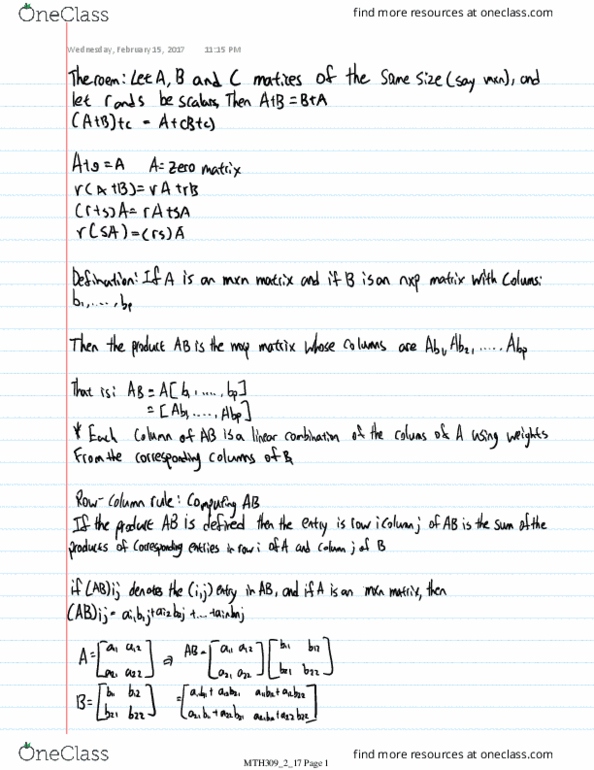 OneClass find more resources at oneclass.com
Wednesday, February 15, 2017 11:15 PM
Theroem: Let A, B and C matixes of the same size (say mxn), and
let r and s be scalars, Then A+B = B+A
(A+B)+c = A+(B+c)
A+0 = A A = zero matrix
r(A+B) = rA+rB
(r+s)A = rA+sA
r(sA) = (rs)A
Defination: If A is an mxn matrix and if B is an nxp matrix with colums:
b1, ...., bp
Then the product AB is the mxp matrix whose columns are Ab1, Ab2, ..... Abp
That is: AB = A[b1, ...., bp]
= [Ab1, ...., Abp]
* Each column of AB is a linear combination of the colums of A using weights
From the corresponding columns of B
Row-Column rule: Computing AB
If the product AB is defined then the entry is row i column j of AB is the sum of the
products of corresponding entries in row i of A and column j of B
if (AB)ij denotes the (i,j) entry in AB, and if A is an mxn matrix, then
(AB)ij = ai1b1j + ai2b2j + ... + ainbnj
A = [a11 a12 ⇒ AB = [a11 a12 [b11 b12
a21 a22] a21 a22] b21 b22]
B = [b11 b12 = [a11b11 + a12b21 a11b12 + a12b22
b21 b22] a21b11 + a22b21 a21b12 + a22b22]
MTH309_2_17 Page 1
OneClass find more resources at oneclass.com